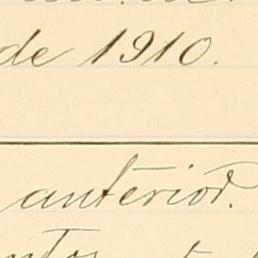 de 1910.
anterior.